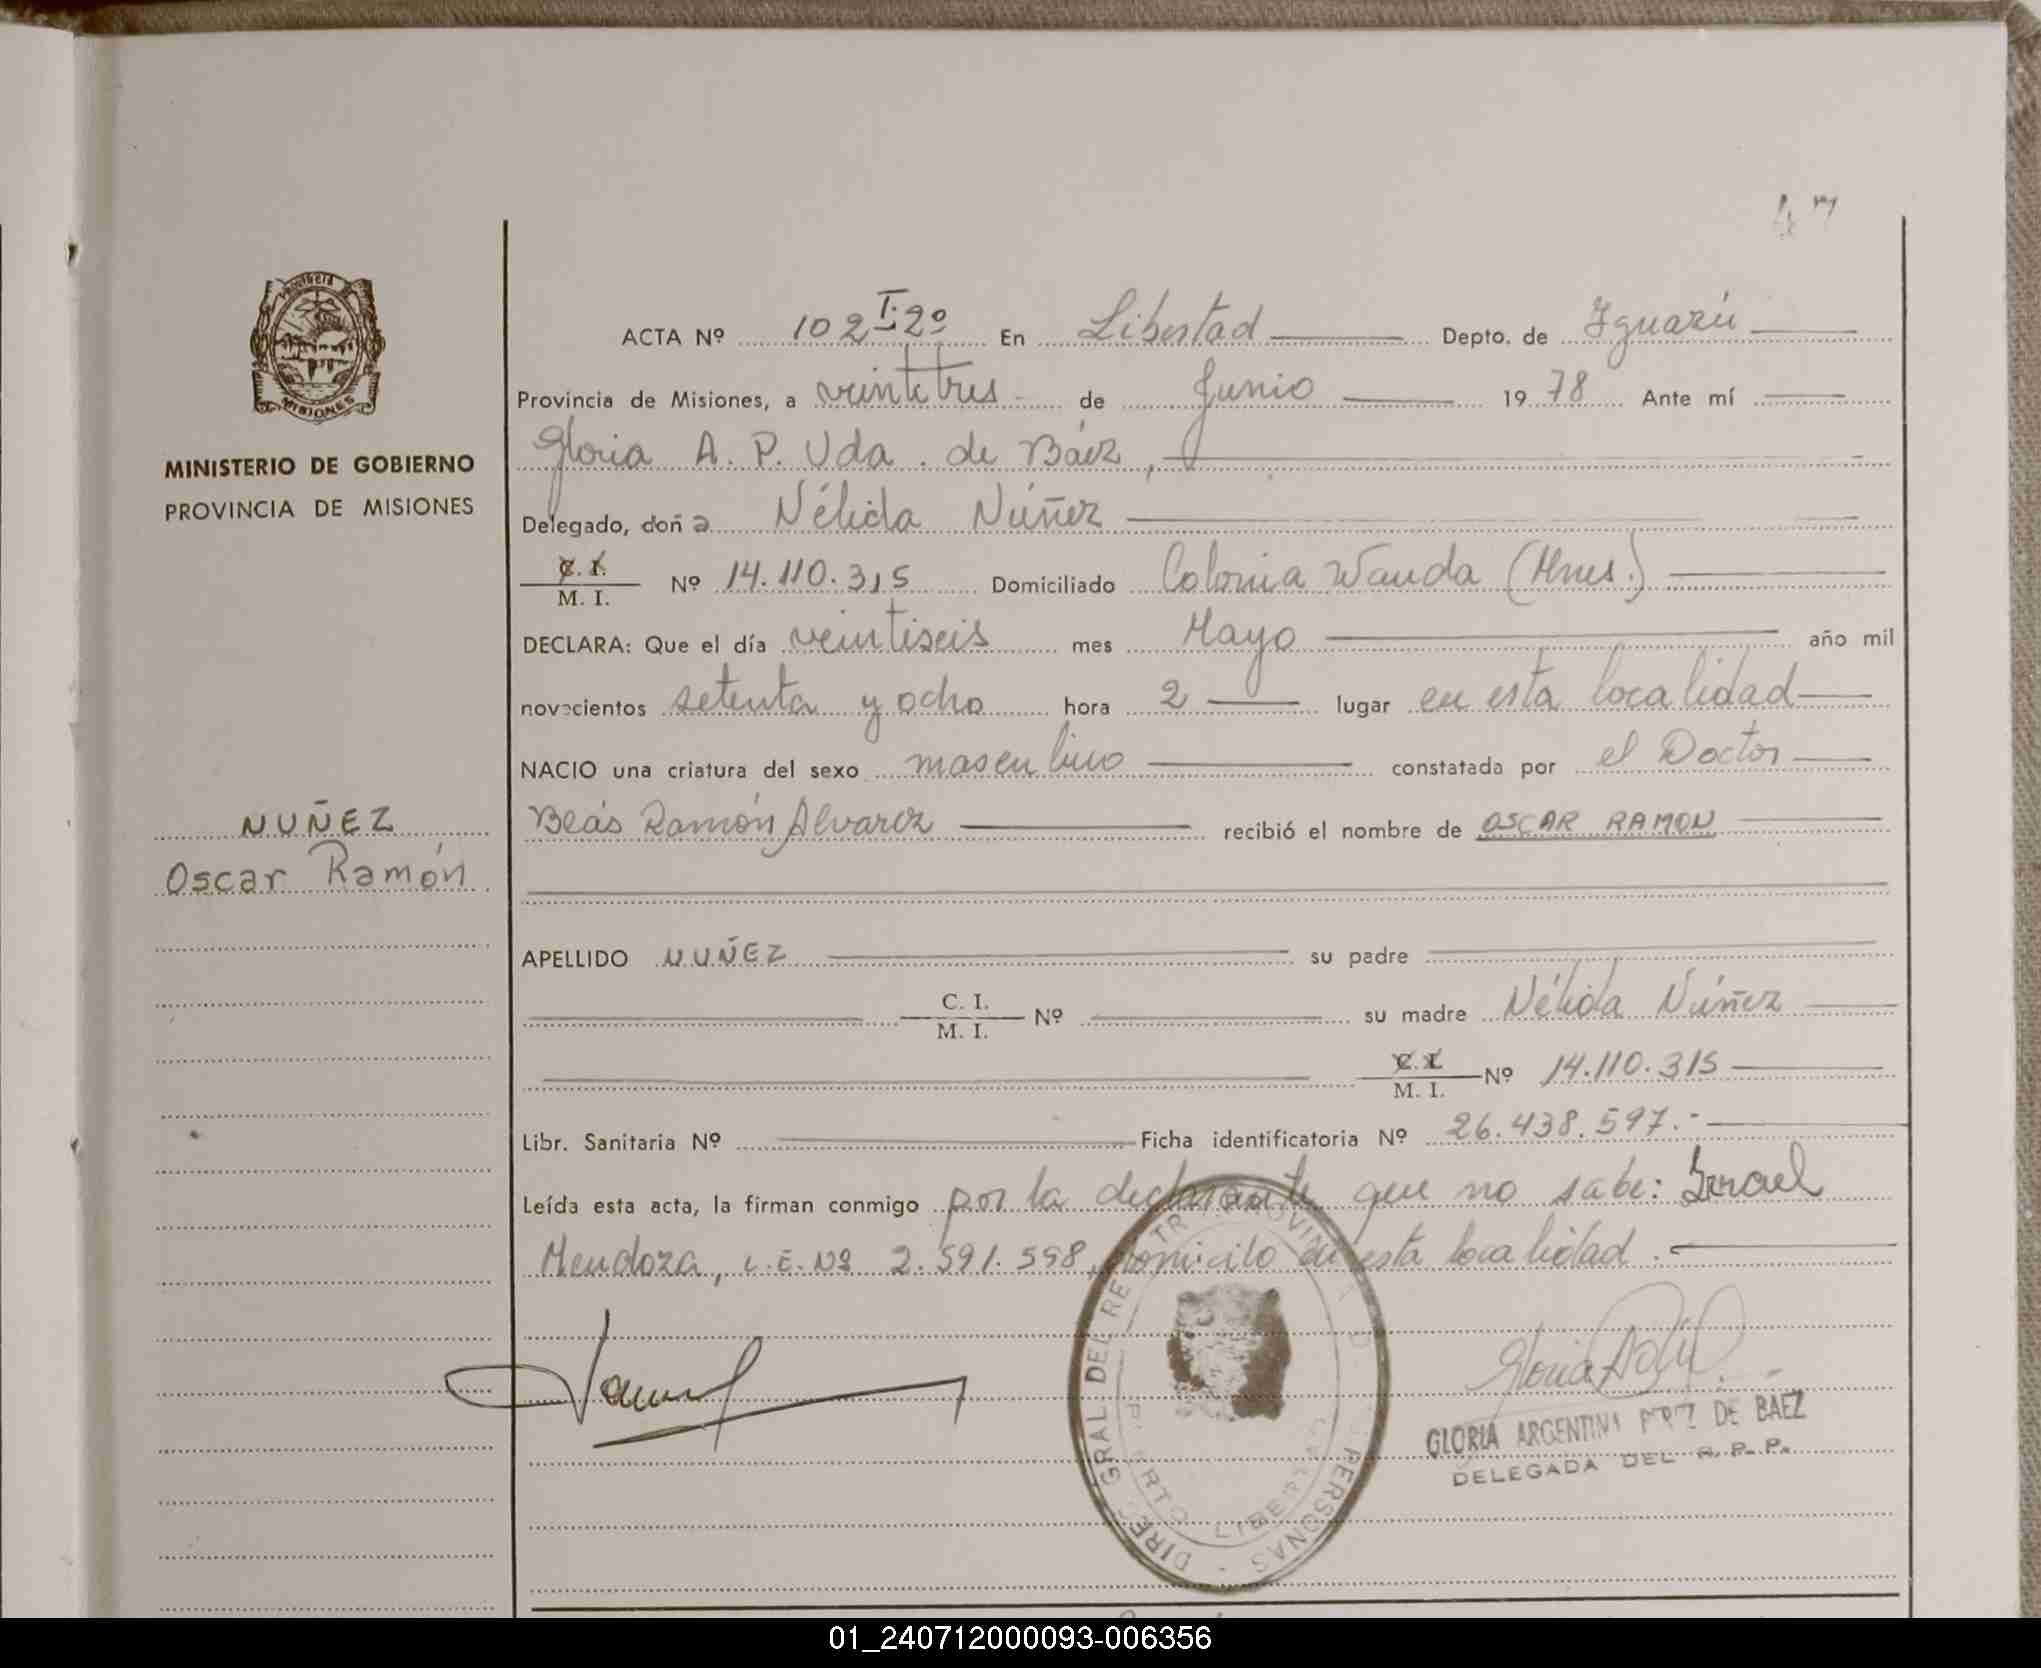 47
PROVINCIA DE
MISIONES
MINISTERIO DE GOBIERNO
PROVINCIA DE MISIONES
NUÑEZ
Oscar Ramón
ACTA Nº 102 T:2º En Libertad Depto. de Iguazú
Provincia de Misiones, a veintitres de Junio 1978 Ante mí
Gloria A. P. Vda. de Báez,
Delegado, doña Nélida Núñez
C. I.
M. I. Nº 14.110.315 Domiciliado Colonia Wanda (Mnes.)
DECLARA: Que el día veintiseis mes Mayo año mil
novecientos setenta y ocho hora 2 lugar en esta localidad
NACIO una criatura del sexo masculino constatada por el Doctor
Blás Ramón Alvarez recibió el nombre de OSCAR RAMON
APELLIDO NUÑEZ su padre
C. I.
M. I. Nº su madre Nélida Núñez
C. I.
M. I. Nº 14.110.315
Libr. Sanitaria Nº Ficha identificatoria Nº 26.438.597.-
Leída esta acta, la firman conmigo por la declarante que no sabe: Israel
Mendoza, L.E. Nº 2.591.598, domicilo en esta localidad.
DIREC. GRAL. DEL REGISTRO PROVINCIAL DE LAS PERSONAS
PUERTO LIBERTAD
GLORIA ARGENTINA PEREZ DE BAEZ
DELEGADA DEL R. P. P.
01_240712000093-006356